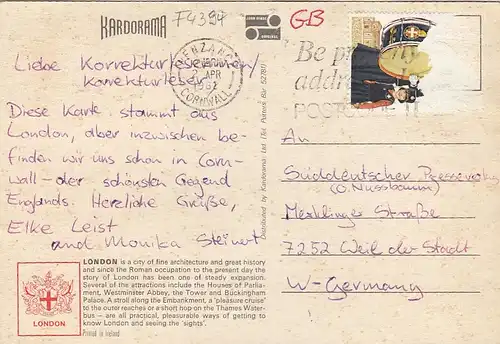 KARDORAMA
F4394
JOHN HINDE
ORIGINAL
GB
PENZANCE
APR
1982
CORNWALL
Be properly
addressed
POSTCODE IT
Liebe Korrekturleserinnen
Korrekturleser
Diese Karte stammt aus
London, aber inzwischen be-
finden wir uns schon in Corn-
wall - der schönsten Gegend
Englands. Herzliche Grüße,
Elke Leist
and Monika Steinert
Distributed by Kardorama Ltd (Tel. Potters Bar 52781)
An
Süddeutscher Presseverlag
(O. Nussbaum)
Merklinger Straße
7252 Weil der Stadt
W-Germany
LONDON
LONDON is a city of fine architecture and great history
and since the Roman occupation to the present day the
story of London has been one of steady expansion.
Several of the attractions include the Houses of Parlia-
ment, Westminster Abbey, the Tower and Buckingham
Palace. A stroll along the Embankment, a 'pleasure cruise'
to the outer reaches or a short hop on the Thames Water-
bus — are all practical, pleasurable ways of getting to
know London and seeing the 'sights'.
Printed in Ireland